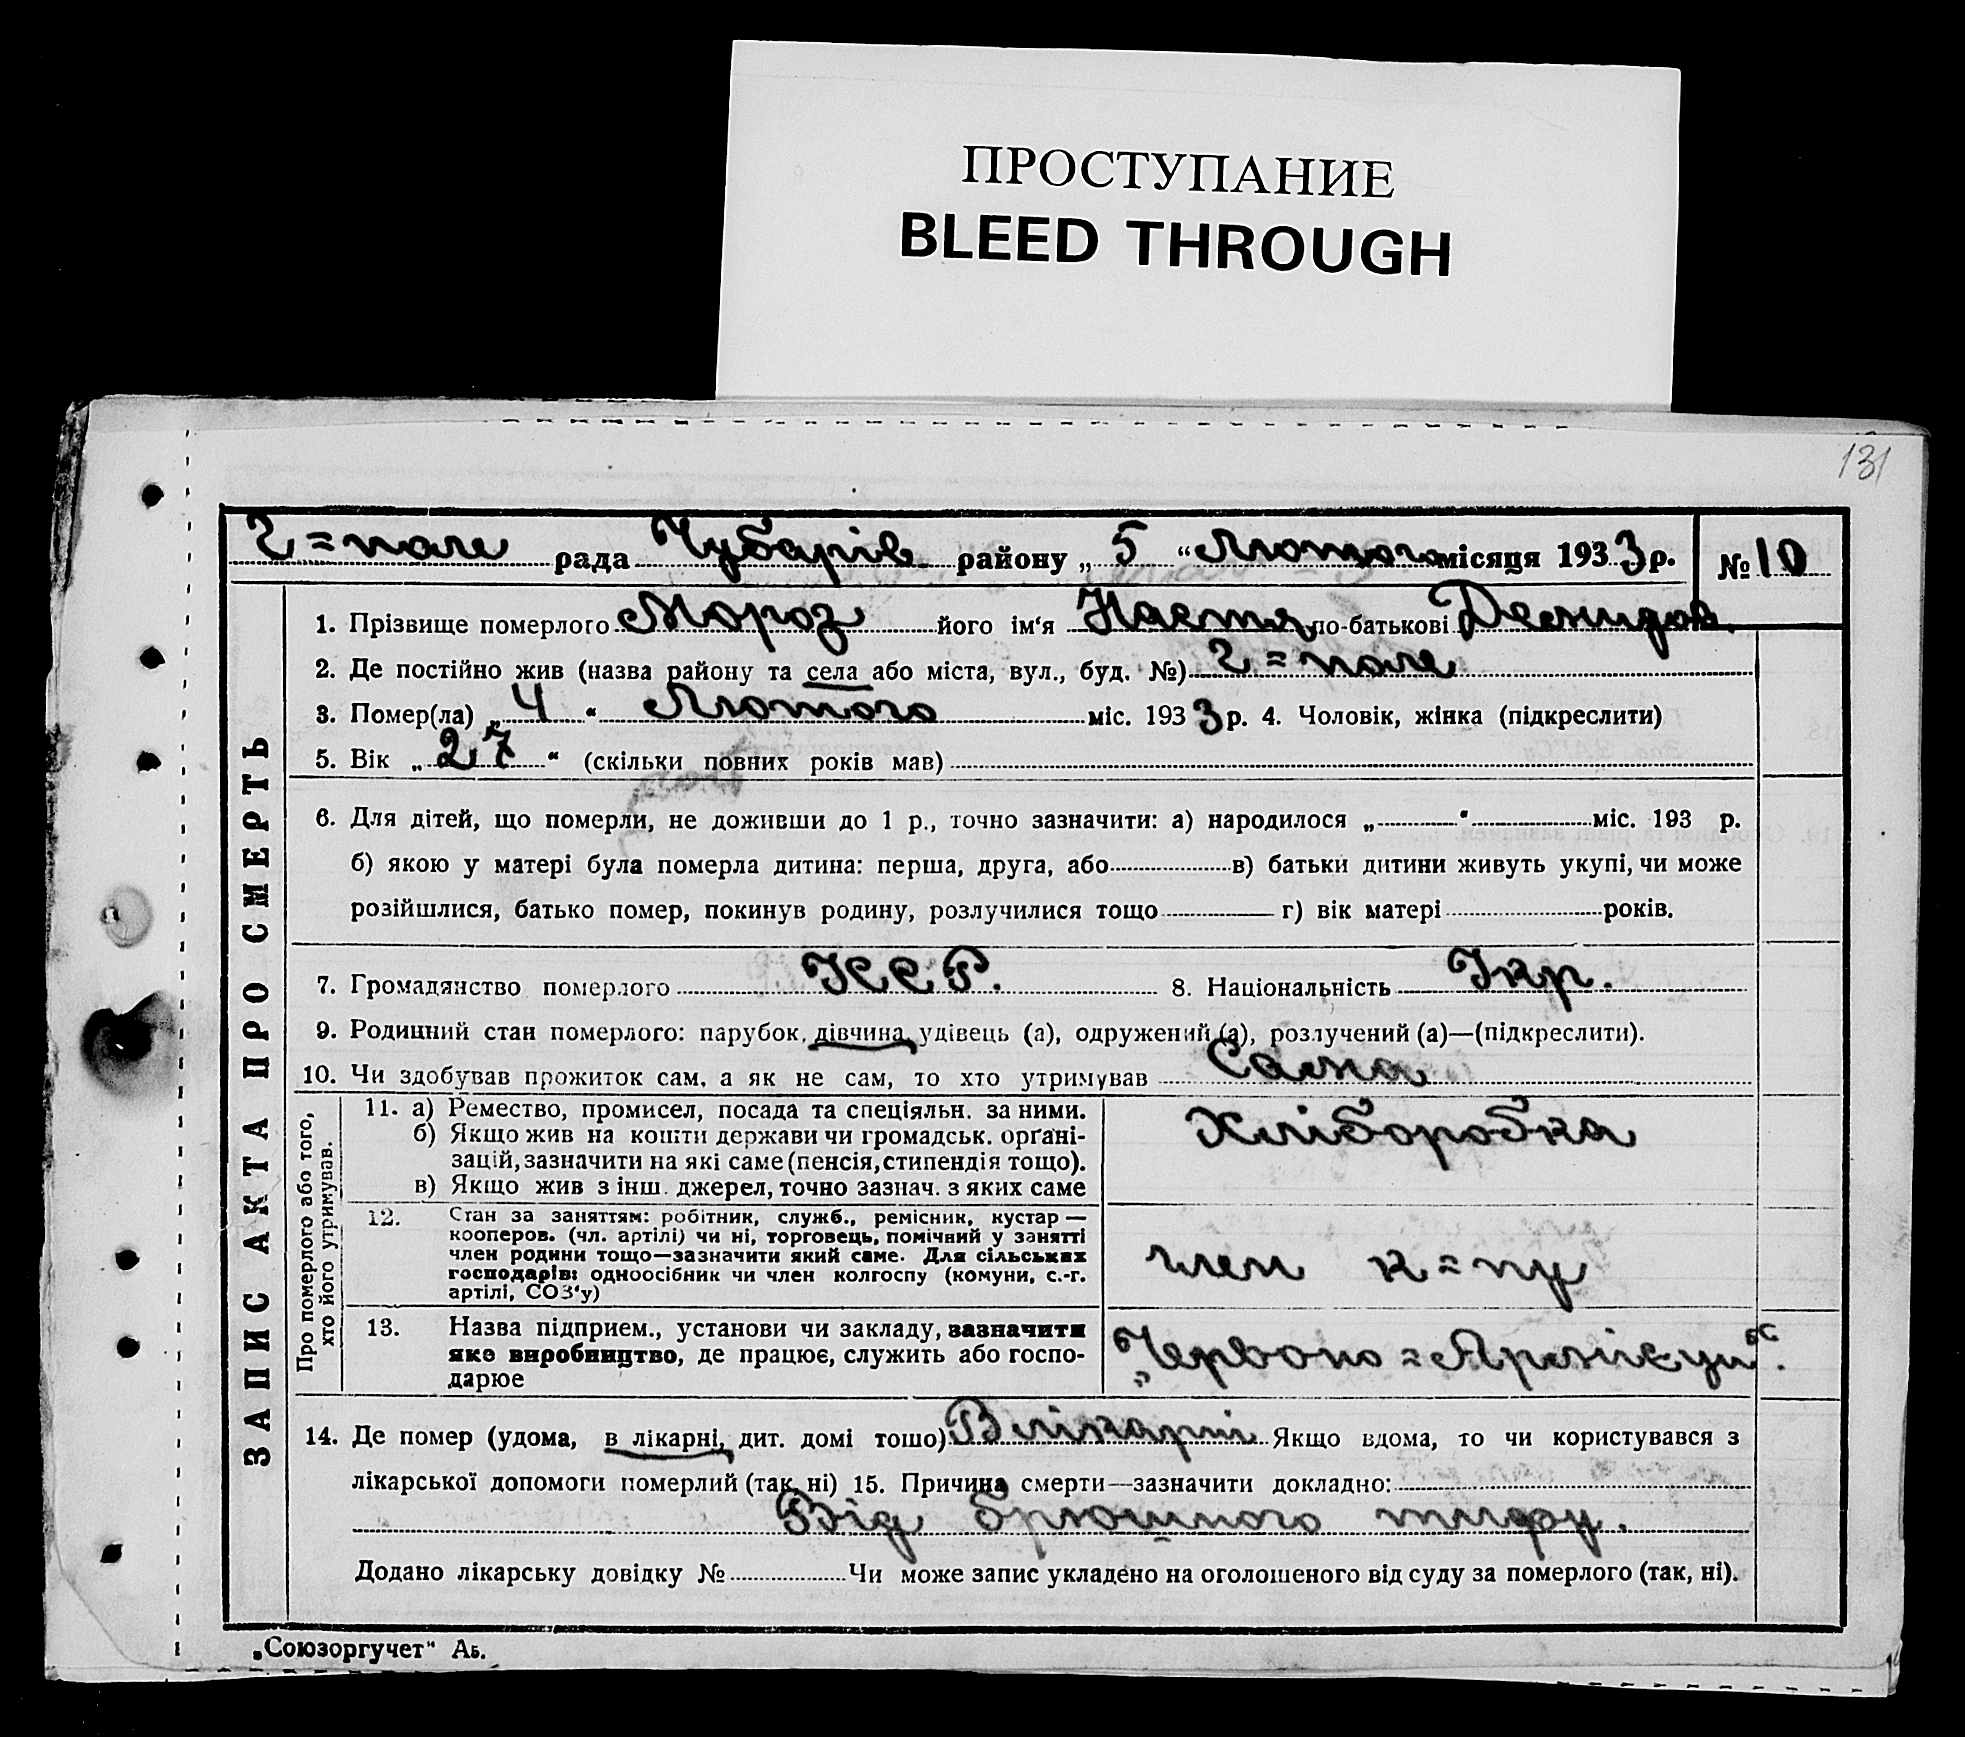 ПРОСТУПАНИЕ
BLEED THROUGH
131
Г=поле рада Чубарів району „ 5 “ Лютого місяця 1933 р. № 10
1. Прізвище померлого Мороз його ім‘я Настя по-батькові Демидов.
2. Де постійно жив (назва району та села або міста, вул., буд. №) Г=поле
3. Помер(ла) „ 4 “ Лютого міс. 1933 р. 4. Чоловік, жінка (підкреслити)
5. Вік „ 27 “ (скільки повних років мав)
6. Для дітей, що померли, не доживши до 1 р., точно зазначити: а) народилося „ “ міс. 193 р.
б) якою у матері була померла дитина: перша, друга, або в) батьки дитини живуть укупі, чи може
розійшлися, батько помер, покинув родину, розлучилися тощо г) вік матері років.
7. Громадянство померлого УССР. 8. Національність Укр.
9. Родинний стан померлого: парубок, дівчина, удівець (а), одружений (а), розлучений (а)—(підкреслити).
10. Чи здобував прожиток сам, а як не сам, то хто утримував Сама
ЗАПИС АКТА ПРО СМЕРТЬ
Про померлого або того,
хто його утримував.
11. а) Ремество, промисел, посада та спеціяльн. за ними.
б) Якщо жив на кошти держави чи громадськ. орґані-
зацій, зазначити на які саме (пенсія, стипендія тощо).
в) Якщо жив з інш. джерел, точно зазнач. з яких саме
Хліборобка
12. Стан за заняттям: робітник, служб., ремісник, кустар —
кооперов. (чл. артілі) чи ні, торговець, помічний у занятті
член родини тощо—зазначити який саме. Для сільських
господарів: одноосібник чи член колгоспу (комуни, с.-г.
артілі, СОЗ‘у)
член к=пу
13. Назва підприєм., установи чи закладу, зазначити
яке виробництво, де працює, служить або госпо-
дарює
„Червоно=Армієць“.
14. Де помер (удома, в лікарні, дит. домі тощо) В лікарні Якщо вдома, то чи користувався з
лікарської допомоги померлий (так, ні) 15. Причина смерти—зазначити докладно:
Від брюшного тифу.
Додано лікарську довідку № Чи може запис укладено на оголошеного від суду за померлого (так, ні).
„Союзоргучет“ Аь.